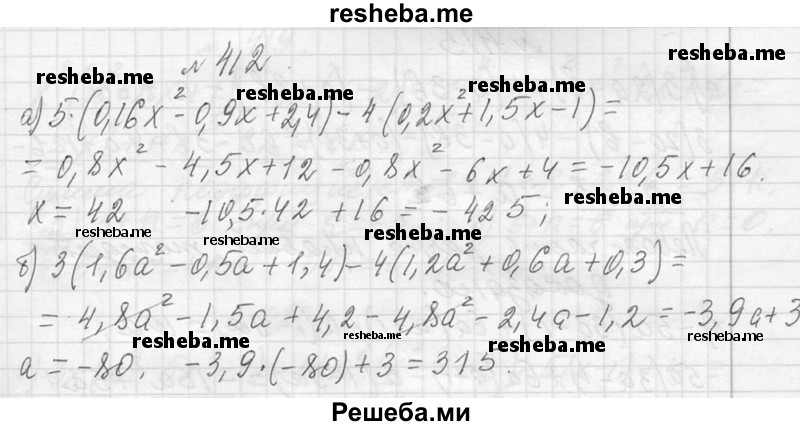 resheba.me
№ 412.
resheba.me
resheba.me
resheba.me
resheba.me
а) 5·(0,16x²-0,9x+2,4)-4(0,2x²+1,5x-1)=
= 0,8x² - 4,5x+12 - 0,8x² - 6x + 4 = -10,5x+16.
resheba.me
resheba.me
x = 42 -10,5·42 +16 = -425;
resheba.me
resheba.me
resheba.me
б) 3(1,6a²-0,5a+1,4)-4(1,2a²+0,6a+0,3)=
= 4,8a²-1,5a+4,2-4,8a²-2,4a-1,2=-3,9a+3
resheba.me
resheba.me
resheba.me
resheba.me
a = -80, -3,9·(-80)+3=315.
Решеба.ми